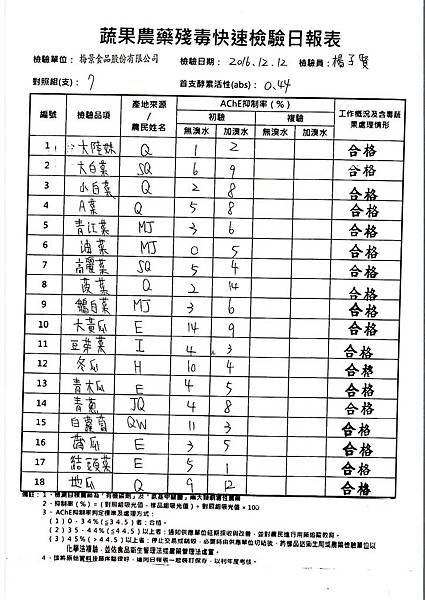 蔬果農藥殘毒快速檢驗日報表
檢驗單位: 梅景食品股份有限公司 檢驗日期: 2016.12.12 檢驗員: 楊子賢
對照組(支): 7 首支酵素活性(abs): 0.44
編號 檢驗品項 產地來源/農民姓名 AChE抑制率(%) 工作概況及含毒蔬果處理情形
初驗 複驗
無溴水 加溴水 無溴水 加溴水
1 大陸妹 Q 1 2 合格
2 大白菜 SQ 6 9 合格
3 小白菜 Q 2 8 合格
4 A菜 Q 5 8 合格
5 青江菜 MJ 3 6 合格
6 油菜 MJ 0 5 合格
7 高麗菜 SQ 5 4 合格
8 菠菜 Q 2 14 合格
9 鵝白菜 MJ 3 6 合格
10 大黃瓜 E 14 9 合格
11 豆芽菜 I 4 3 合格
12 冬瓜 H 10 4 合格
13 青木瓜 E 4 5 合格
14 青蔥 JQ 4 8 合格
15 白蘿蔔 QW 11 3 合格
16 南瓜 E 3 5 合格
17 結頭菜 E 5 1 合格
18 地瓜 Q 9 12 合格
備註: 1、檢測目標農藥為「有機磷劑」及「氨基甲酸鹽」兩大類劇毒性農藥
2、抑制率(%)=(對照組吸光值-樣品組吸光值)÷對照組吸光值×100
3、AChE抑制率判定標準及處理方式:
(1) 0-34%(≦34.5)者:合格。
(2) 35-44%(≦44.5)以上者:通知供應單位延期採收與改善,並對農民進行用藥追蹤教育。
(3) 45%(>44.5)以上者:停止交易或銷毀,必要時由供應單位切結後,將樣品送衛生局或農藥檢驗單位以
化學法複驗,並依食品衛生管理法或農藥管理法處置。